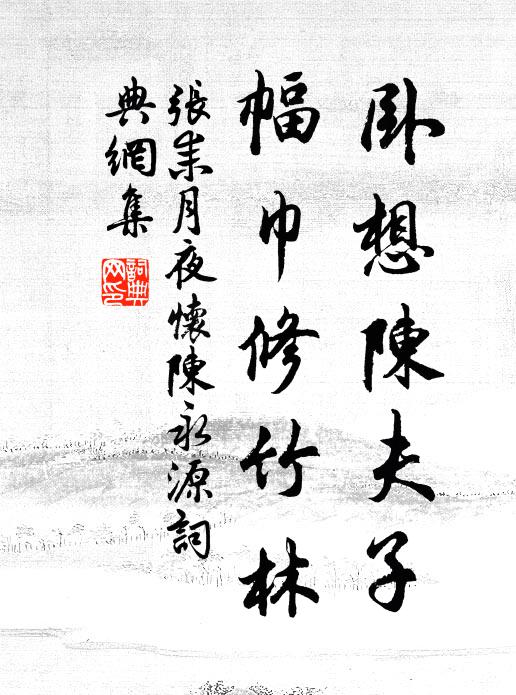 卧想陳夫子
幅巾修竹林
張耒月夜懷陳永源詞
典網集
詞典網印